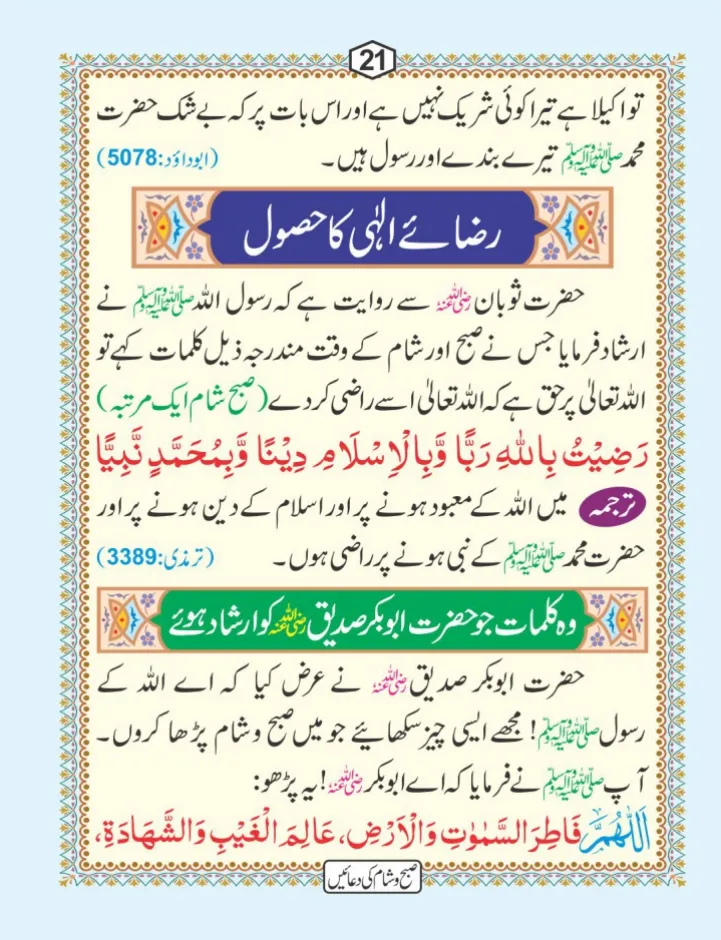 21
تو اکیلا ہے تیرا کوئی شریک نہیں ہے اور اس بات پر کہ بے شک حضرت
محمد ﷺ تیرے بندے اور رسول ہیں۔ (ابوداؤد:5078)
رضائے الٰہی کا حصول
حضرت ثوبان رضی اللہ عنہ سے روایت ہے کہ رسول اللہ ﷺ نے
ارشاد فرمایا جس نے صبح اور شام کے وقت مندرجہ ذیل کلمات کہے تو
اللہ تعالیٰ پر حق ہے کہ اللہ تعالیٰ اسے راضی کردے (صبح شام ایک مرتبہ)
رَضِيْتُ بِاللهِ رَبًّا وَّبِالْاِسْلَامِ دِيْنًا وَّبِمُحَمَّدٍ نَّبِيًّا
ترجمہ میں اللہ کے معبود ہونے پر اور اسلام کے دین ہونے پر اور
حضرت محمد ﷺ کے نبی ہونے پر راضی ہوں۔ (ترمذی:3389)
وہ کلمات جو حضرت ابوبکر صدیق رضی اللہ عنہ کو ارشاد ہوئے
حضرت ابوبکر صدیق رضی اللہ عنہ نے عرض کیا کہ اے اللہ کے
رسول ﷺ! مجھے ایسی چیز سکھائیے جو میں صبح و شام پڑھا کروں۔
آپ ﷺ نے فرمایا کہ اے ابوبکر رضی اللہ عنہ! یہ پڑھو:
اَللّٰهُمَّ فَاطِرَ السَّمٰوٰتِ وَالْاَرْضِ، عَالِمَ الْغَيْبِ وَالشَّهَادَةِ،
صبح و شام کی دعائیں